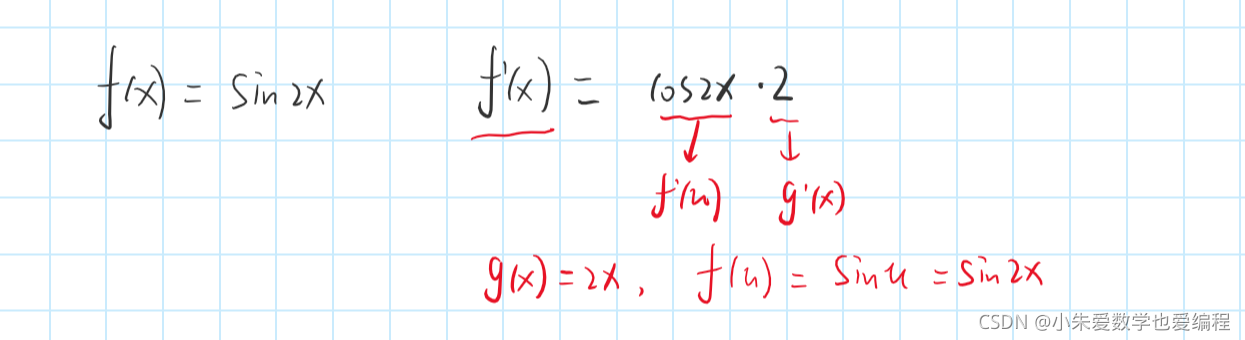 f(x) = sin2x f'(x) = cos2x · 2
f'(u) g'(x)
g(x) = 2x, f(u) = sinu = sin2x
CSDN @小朱爱数学也爱编程